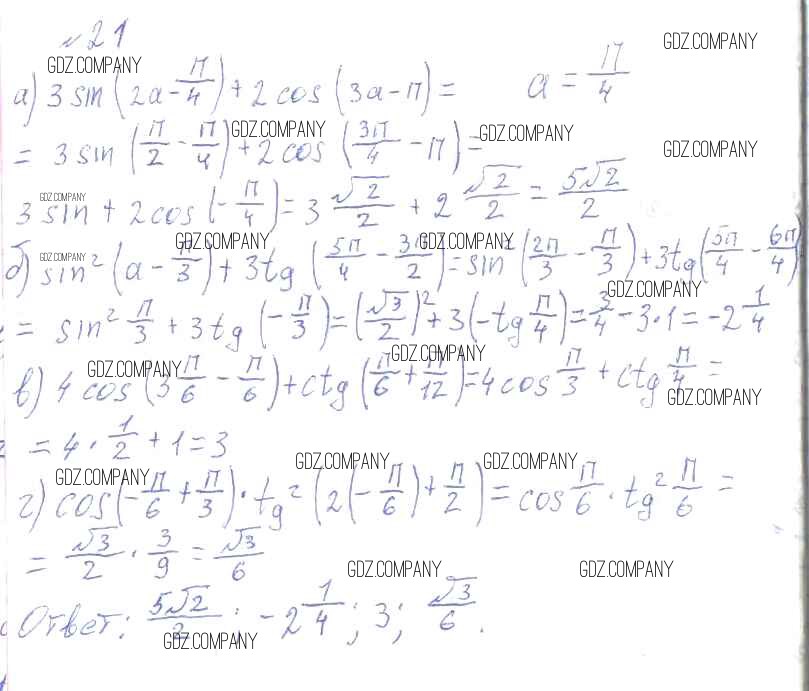 №21
GDZ.COMPANY GDZ.COMPANY
а) 3 sin (2a - π/4) + 2 cos (3a - π) = a = π/4
GDZ.COMPANY GDZ.COMPANY GDZ.COMPANY
= 3 sin (π/2 - π/4) + 2 cos (3π/4 - π) =
GDZ.COMPANY
3 sin + 2 cos (- π/4) = 3 √2/2 + 2 √2/2 = 5√2/2
GDZ.COMPANY GDZ.COMPANY GDZ.COMPANY
б) sin² (a - π/3) + 3tg (5π/4 - 3π/2) = sin² (2π/3 - π/3) + 3tg (5π/4 - 6π/4)
GDZ.COMPANY
= sin² π/3 + 3tg (- π/3) = (√3/2)² + 3 (-tg π/4) = 3/4 - 3·1 = -2 1/4
GDZ.COMPANY GDZ.COMPANY
в) 4 cos (3 π/6 - π/6) + ctg (π/6 + π/12) = 4 cos π/3 + ctg π/4 =
GDZ.COMPANY
= 4 · 1/2 + 1 = 3
GDZ.COMPANY GDZ.COMPANY GDZ.COMPANY
г) cos (- π/6 + π/3) · tg² (2 (- π/6) + π/2) = cos π/6 · tg² π/6 =
= √3/2 · 3/9 = √3/6
GDZ.COMPANY GDZ.COMPANY
Ответ: 5√2/2; -2 1/4; 3; √3/6.
GDZ.COMPANY